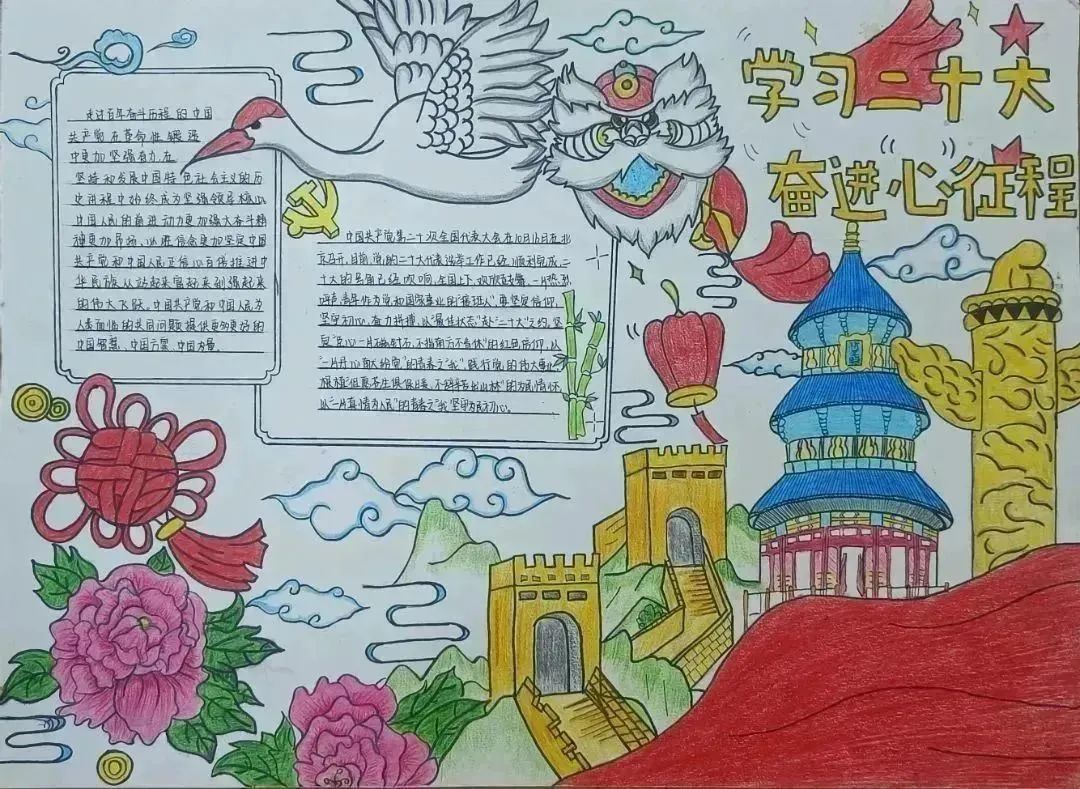 学习二十大
奋进心征程
走过百年奋斗历程的中国
共产党在革命性锻造
中更加坚强有力,在
坚持和发展中国特色社会主义的历
史进程中始终成为坚强领导核心
中国人民的奋进动力更加强大奋斗精
神更加昂扬、必胜信念更加坚定中国
共产党和中国人民正信心百倍推进中
华民族从站起来富起来到强起来
的伟大飞跃。中国共产党和中国人民为
人类面临的共同问题提供更多更好的
中国智慧、中国方案、中国力量。
中国共产党第二十次全国代表大会在10月16日在北
京召开,目前,党的二十大代表选举工作已经顺利完成,二
十大的号角已经吹响,全国上下,欢欣鼓舞、一片热烈
青年作为党和国家事业的"接班人",要坚定信仰,
坚守初心、奋力拼搏,以"最佳状态"赴"二十大"之约,坚
定"臣心一片磁针石,不指南方不肯休"的红色信仰,以
"一片丹心献给党"的青春之"我",践行党的伟大事业
"但愿苍生俱保暖,不辞辛苦出山林"的为民情怀
以"一片真情为人民"的青春之"我"坚守为民初心。